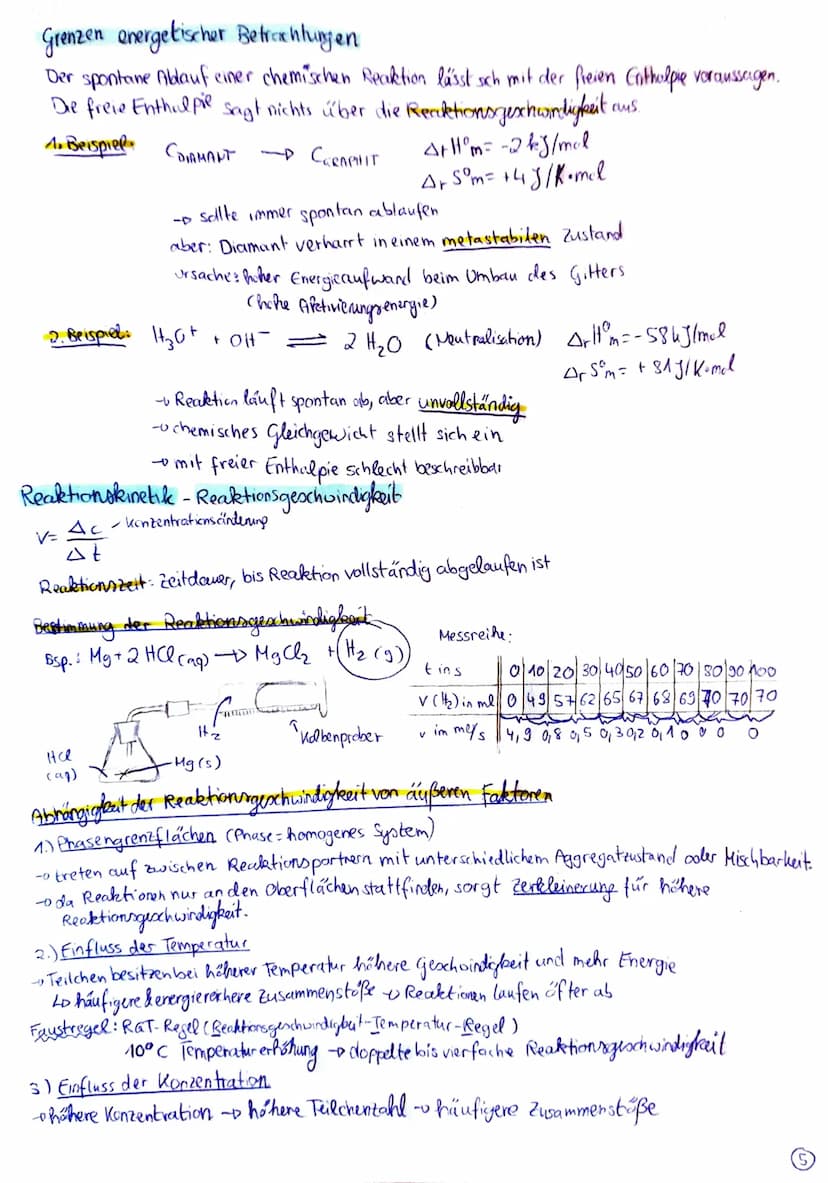 Grenzen energetischer Betrachtungen
Der spontane Ablauf einer chemischen Reaktion lässt sch mit der freien Enthalpie voraussagen.
Die freie Enthalpie sagt nichts über die Reaktionsgeschwindigkeit aus.
1. Beispiel: C DIAMANT → C GRAPHIT ΔrH°m = -2 kJ/mol
ΔrS°m = +4 J/K·mol
→ sollte immer spontan ablaufen
aber: Diamant verharrt in einem metastabilen Zustand
Ursache: hoher Energieaufwand beim Umbau des Gitters
(hohe Aktivierungsenergie)
2. Beispiel: H₃O⁺ + OH⁻ ⇌ 2 H₂O (Neutralisation) ΔrH°m = -58 kJ/mol
ΔrS°m = +81 J/K·mol
→ Reaktion läuft spontan ab, aber unvollständig
→ chemisches Gleichgewicht stellt sich ein
→ mit freier Enthalpie schlecht beschreibbar
Reaktionskinetik - Reaktionsgeschwindigkeit
v = Δc / Δt - Konzentrationsänderung
Reaktionszeit: Zeitdauer, bis Reaktion vollständig abgelaufen ist
Bestimmung der Reaktionsgeschwindigkeit
Bsp.: Mg + 2 HCl (aq) → MgCl₂ + H₂ (g)
Messreihe:
t in s 0 10 20 30 40 50 60 70 80 90 100
V (H₂) in ml 0 49 57 62 65 67 68 69 70 70 70
v in ml/s 4,9 0,8 0,5 0,3 0,2 0,1 0 0 0 0
H₂
Kolbenprober
HCl (aq)
Mg (s)
Abhängigkeit der Reaktionsgeschwindigkeit von äußeren Faktoren
1.) Phasengrenzflächen (Phase = homogenes System)
→ treten auf zwischen Reaktionspartnern mit unterschiedlichem Aggregatzustand oder Mischbarkeit.
→ da Reaktionen nur an den Oberflächen stattfinden, sorgt Zerkleinerung für höhere
Reaktionsgeschwindigkeit.
2.) Einfluss der Temperatur
→ Teilchen besitzen bei höherer Temperatur höhere Geschwindigkeit und mehr Energie
↳ häufigere & energiereichere Zusammenstöße → Reaktionen laufen öfter ab
Faustregel: RGT-Regel (Reaktionsgeschwindigkeit-Temperatur-Regel)
10°C Temperaturerhöhung → doppelte bis vierfache Reaktionsgeschwindigkeit
3) Einfluss der Konzentration
→ höhere Konzentration → höhere Teilchenzahl → häufigere Zusammenstöße
5